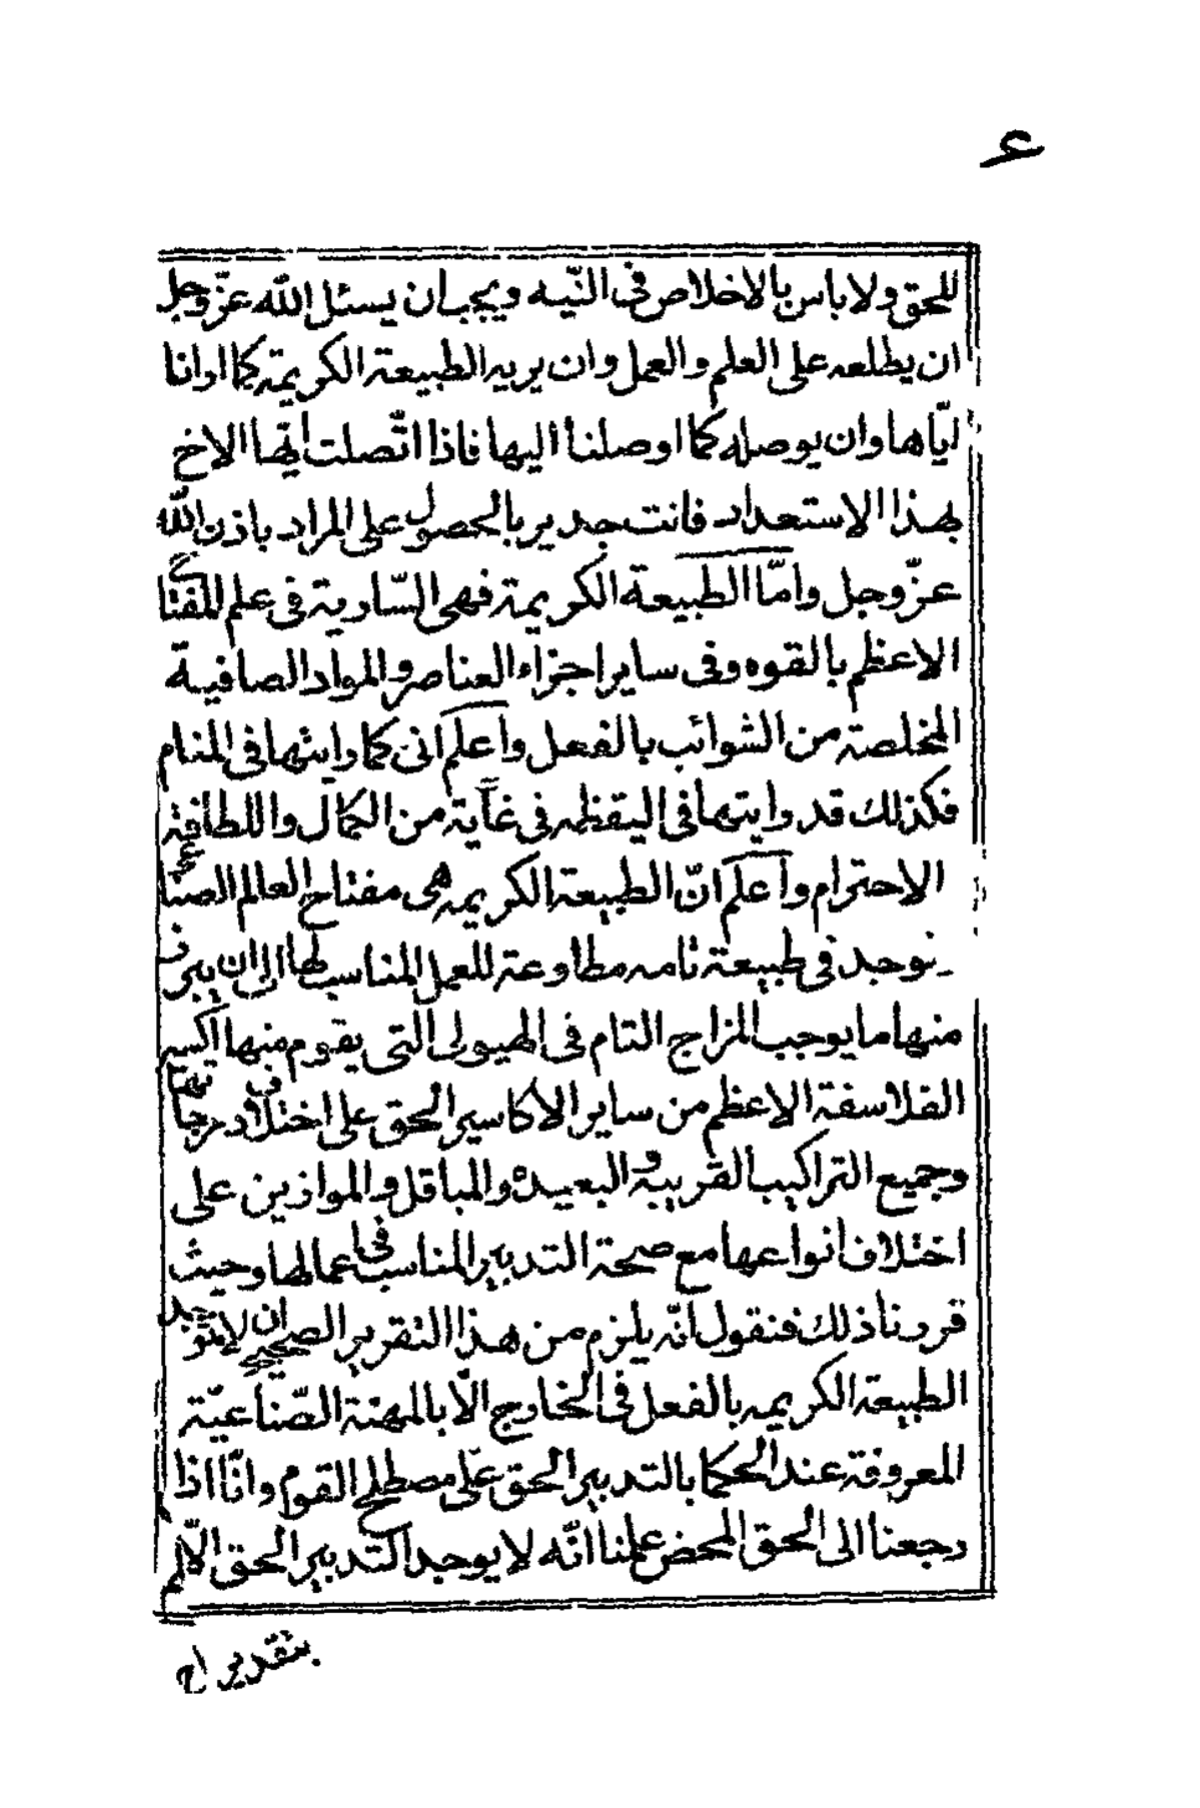 ع
للحق ولا باس بالاخلاص فى النّيه ويجب ان يسئل الله عزّ وجل
ان يطلعه على العلم والعمل وان يريه الطبيعة الكريمة كما ارانا
ايّاها وان يوصله كما اوصلنا اليها فاذا اتّصلت ايّها الاخ
بهذا الاستعداد فانت جدير بالحصول على المراد باذن الله
عزّ وجل وامّا الطبيعة الكريمة فهى السّارية فى علم المفتاح
الاعظم بالقوه وفى ساير اجزاء العناصر والمواد الصافية
المخلصة من الشوائب بالفعل واعلم انى كما رايتها فى المنام
فكذلك قد رايتها فى اليقظه فى غاية من الكمال واللطافة
الاحترام واعلم انّ الطبيعة الكريمه هى مفتاح العالم الصناعى
توجد فى طبيعة تامه مطاوعة للعمل المناسب لها الى ان يبرز
منها ما يوجب المزاج التام فى الهيولى التى يقوم منها اكسير
الفلاسفة الاعظم من ساير الاكاسير الحق على اختلاف مرجاتها
وجميع التراكيب القريبة والبعيده والمباقل والموازين على
اختلاف انواعها مع صحة التدبير المناسب فى اعمالها وحيث
قررنا ذلك فنقول انّه يلزم من هذا التقرير الصحيح ان لا توجد
الطبيعة الكريمه بالفعل فى الخارج الّا بالمهنة الصّناعيّة
المعروفة عند الحكما بالتدبير الحق على مصطلح القوم وانّا اذا
رجعنا الى الحق المحض علمنا انّه لا يوجد التدبير الحق الّا لم
بتقدير